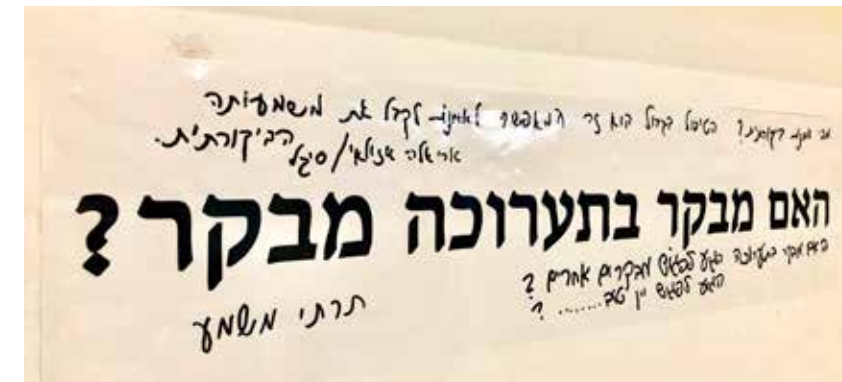 הטיפול בקהל הוא זה המאפשר לאמנות לקבל את משמעותה
הביקורתית.
אריאלה אזולאי/סיגל
האם מבקר בתערוכה מבקר?
האם מבקר בתערוכה לפגוש מבקרים אחרים?
לפגוש יין טוב........?
תרתי משמע